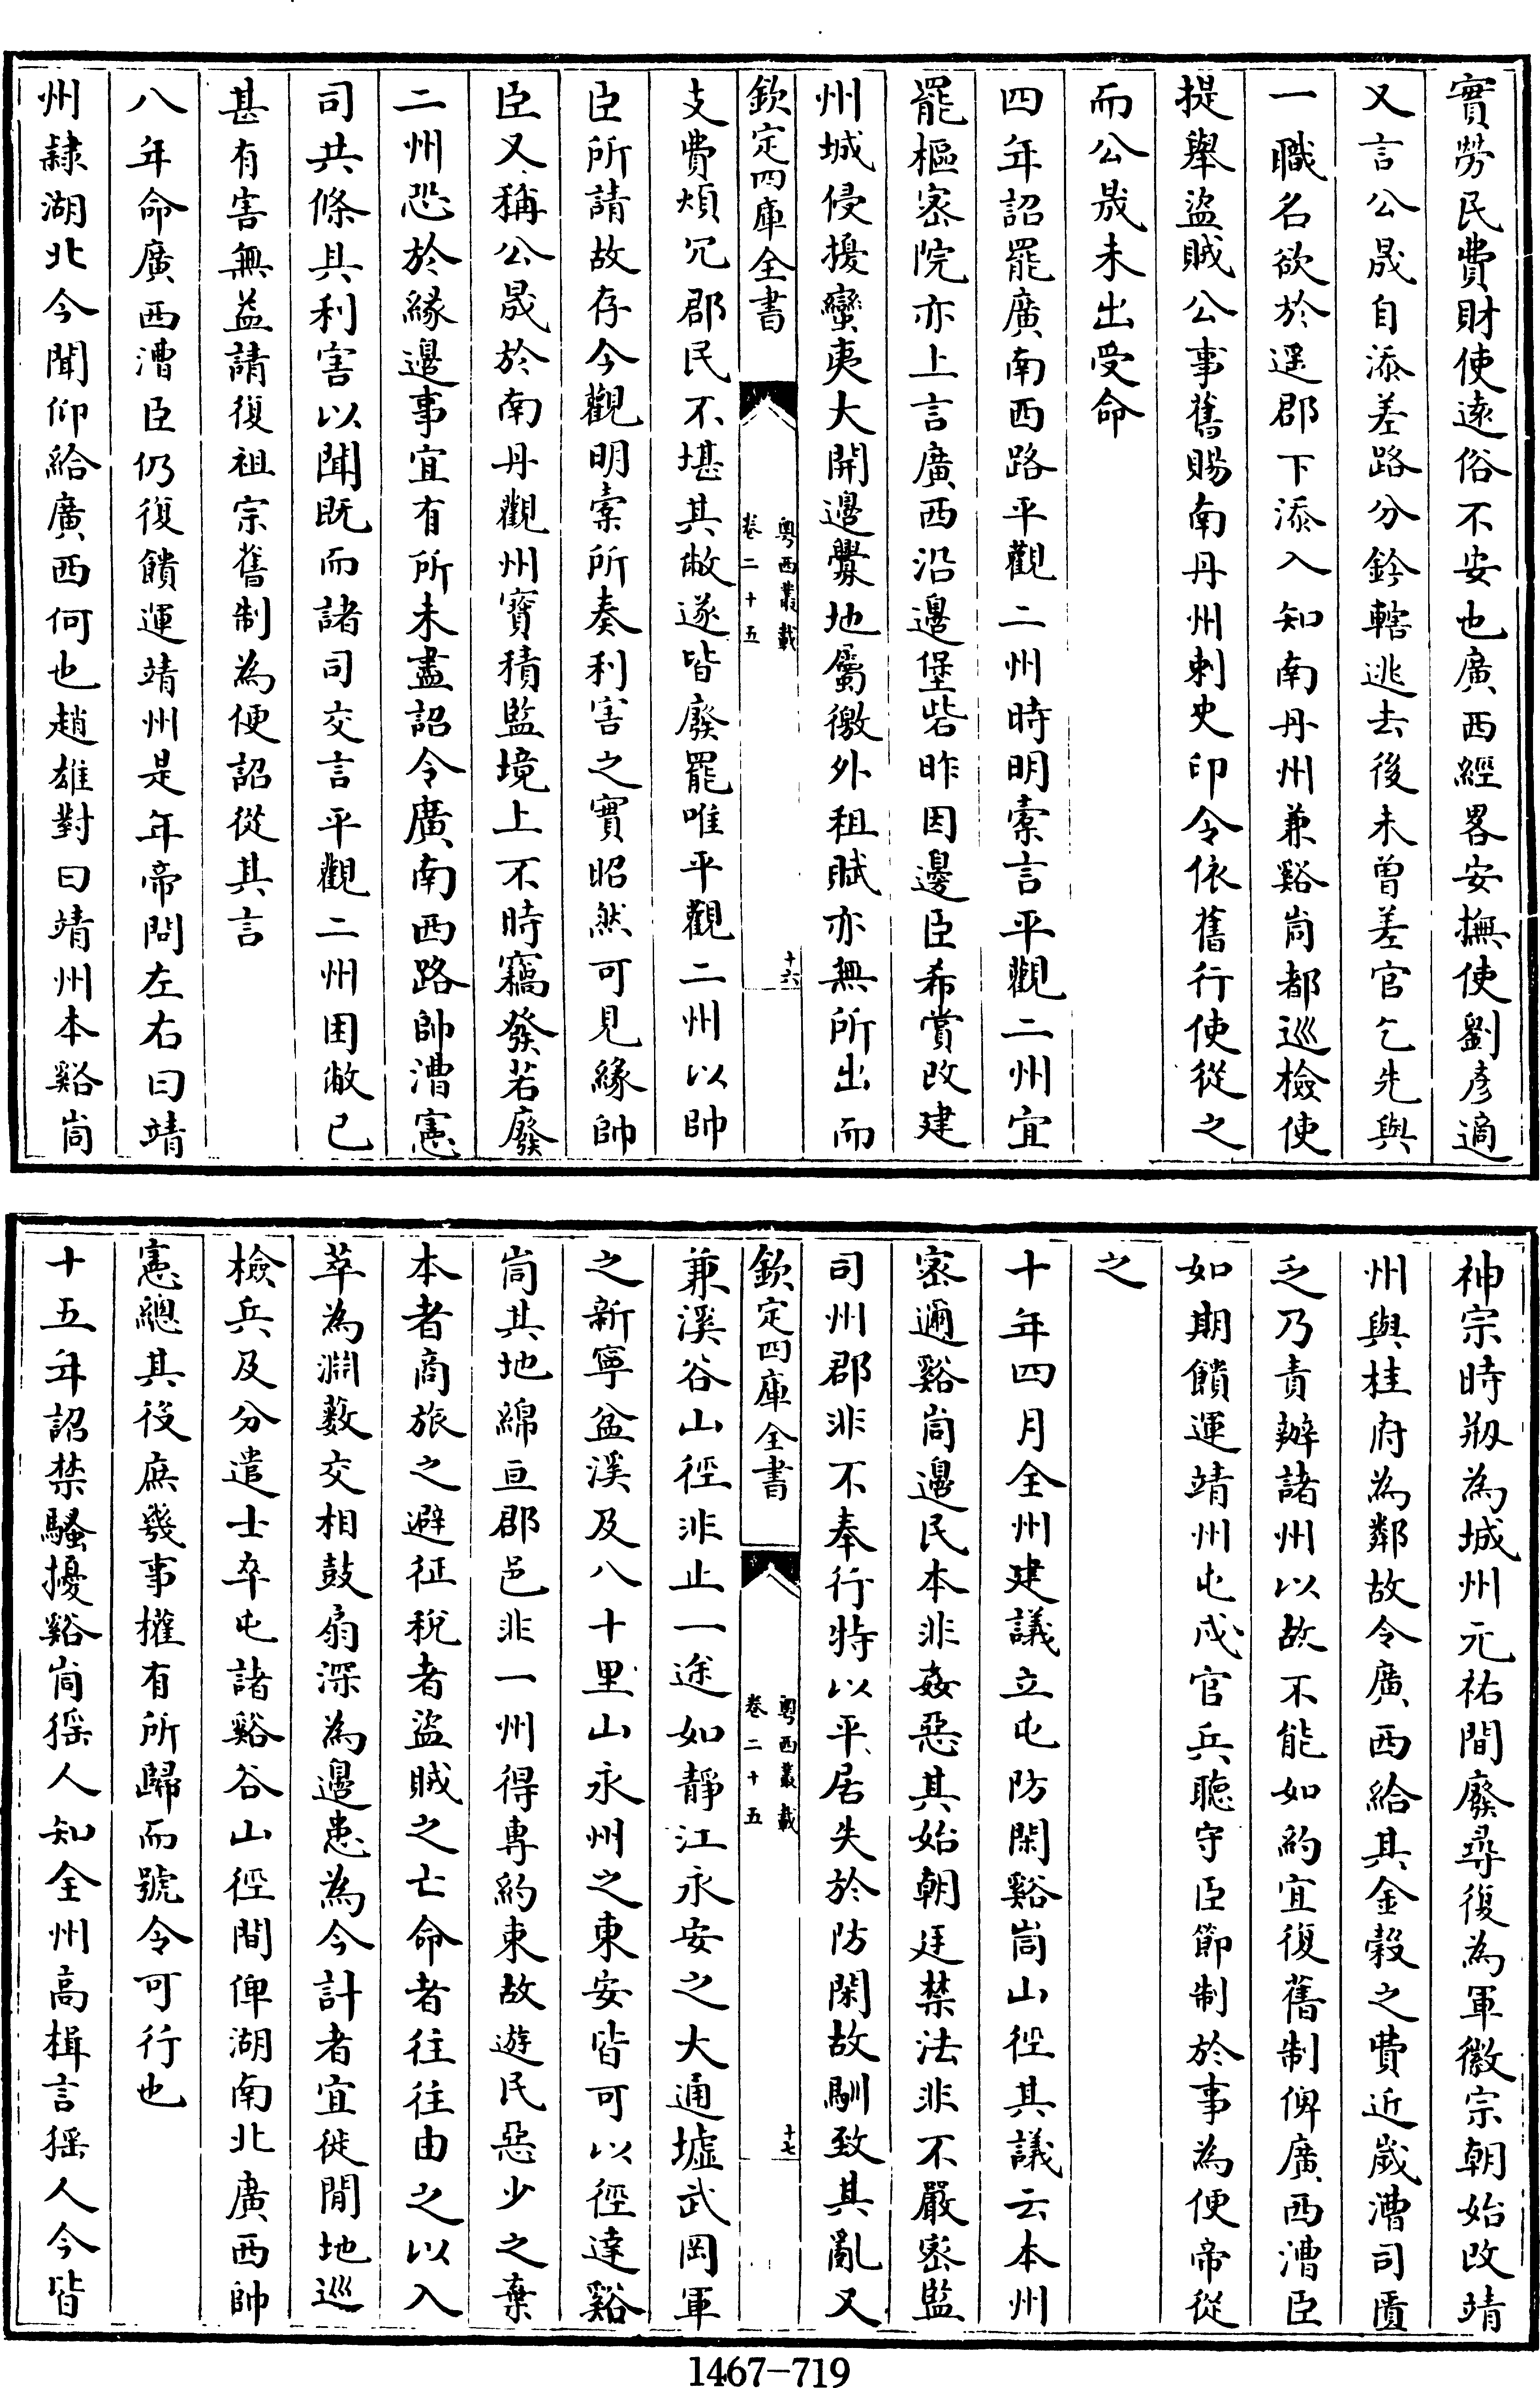 實勞民費財使逺俗不安也廣西經畧安撫使劉彦適
又言公晟自添差路分鈐轄逃去後未曽差官乞先與
一職名欲於遥郡下添入知南丹州兼谿峝都巡檢使
提舉盜賊公事舊賜南丹州刺史印令依舊行使從之
而公晟未出受命
四年詔罷廣南西路平觀二州時明槖言平觀二州宜
罷樞宻院亦上言廣西沿邊堡砦昨因邊臣希賞改建
州城侵擾蠻夷大開邊釁地屬徼外租賦亦無所出而
欽定四庫全書
粤西叢載
卷二十五
十六
支費煩冗郡民不堪其敝遂皆廢罷唯平觀二州以帥
臣所請故存今觀明槖所奏利害之實昭然可見緣帥
臣又稱公晟於南丹觀州寳積監境上不時竊發若廢
二州恐於緣邊事宜有所未盡詔令廣南西路帥漕憲
司共條具利害以聞既而諸司交言平觀二州困敝已
甚有害無益請復祖宗舊制為便詔從其言
八年命廣西漕臣仍復饋運靖州是年帝問左右曰靖
州隸湖北今聞仰給廣西何也趙雄對曰靖州本谿峝
神宗時剏為城州元祐間廢尋復為軍徽宗朝始改靖
州與桂府為鄰故令廣西給其金榖之費近嵗漕司匱
乏乃責辦諸州以故不能如約宜復舊制俾廣西漕臣
如期饋運靖州屯戍官兵聽守臣節制於事為便帝從
之
十年四月全州建議立屯防閑谿峝山徑其議云本州
宻邇谿峝邊民本非姦惡其始朝廷禁法非不嚴宻監
司州郡非不奉行特以平居失於防閑故馴致其亂又
欽定四庫全書
粤西叢載
卷二十五
十七
兼溪谷山徑非止一途如靜江永安之大通墟武岡軍
之新寧盆溪及八十里山永州之東安皆可以徑達谿
峝其地綿亘郡邑非一州得專約束故遊民惡少之棄
本者商旅之避征税者盜賊之亡命者往往由之以入
萃為淵藪交相鼓扇深為邊患為今計者宜徙閒地巡
檢兵及分遣士卒屯諸谿谷山徑間俾湖南北廣西帥
憲總其役庶幾事權有所歸而號令可行也
十五年詔禁騷擾谿峝猺人知全州高楫言猺人今皆
1467-719